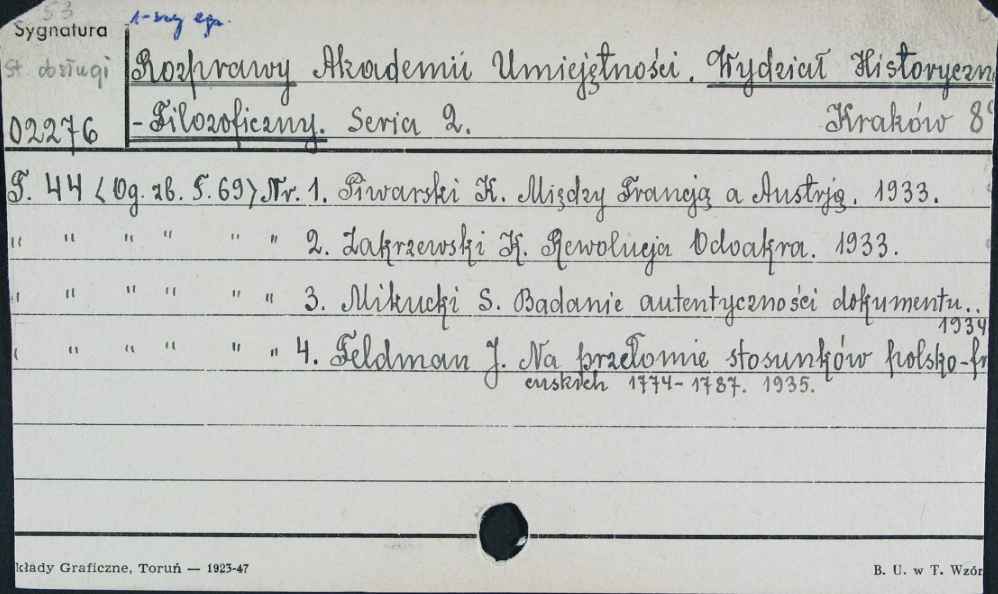 53
1-szy egz.
Sygnatura
st. dosługi
02276
Rozprawy Akademii Umiejętności. Wydział Historyczn
-Filozoficzny. Seria 2. Kraków 8°
T. 44 (Og. zb. T. 69) Nr. 1. Piwarski K. Między Francją a Austrją. 1933.
" " " " " " 2. Zakrzewski K. Rewolucja Odoakra. 1933.
" " " " " " 3. Mikucki S. Badanie autentyczności dokumentu..
1934
" " " " " " 4. Feldman J. Na przełomie stosunków polsko-fr
cuskich 1774-1787. 1935.
kłady Graficzne, Toruń — 1923-47
B. U. w T. Wzór